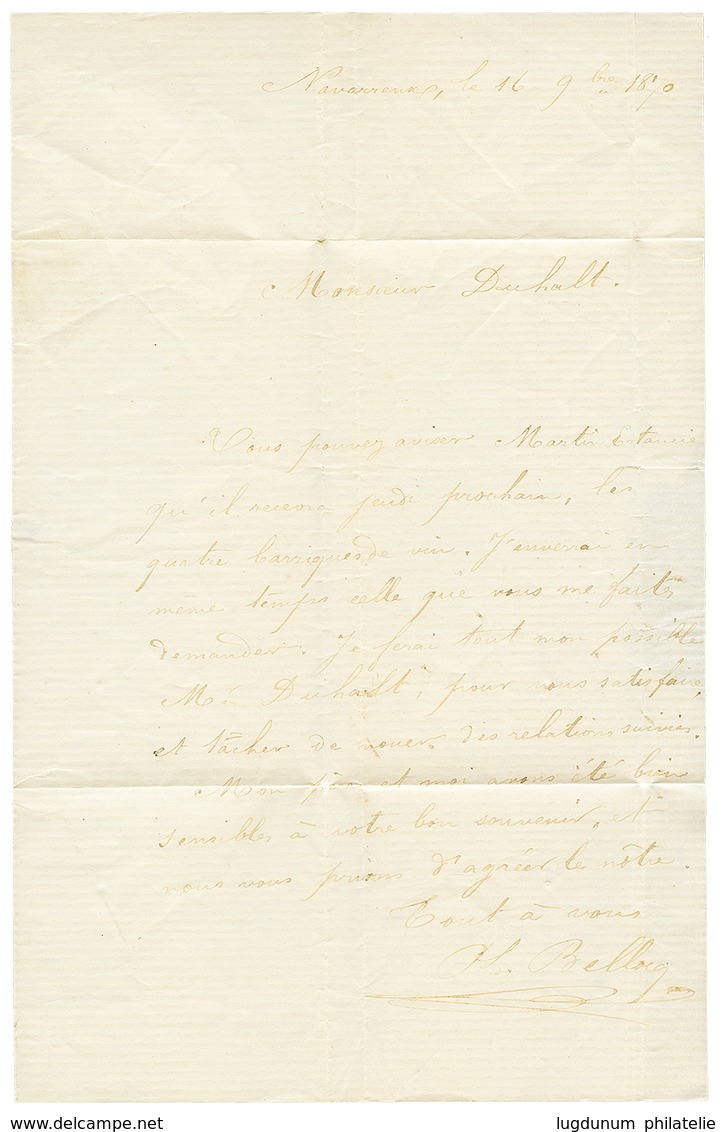 Navarrenx, le 16 9bre 1870
Monsieur Duhalt.
Vous pouvez aviser Martin Estanié
qu'il recevra jeudi prochain, les
quatre barriques de vin. J'enverrai en
même temps celle que vous me faites
demander. Je ferai tout mon possible
Mr Duhalt, pour vous satisfaire,
et tâcher de nouer des relations suivies.
Mon père et moi avons été bien
sensibles à votre bon souvenir, et
nous vous prions d'agréer le nôtre.
Tout à vous
H. Bellocq
delcampe.net
lugdunum philatelie